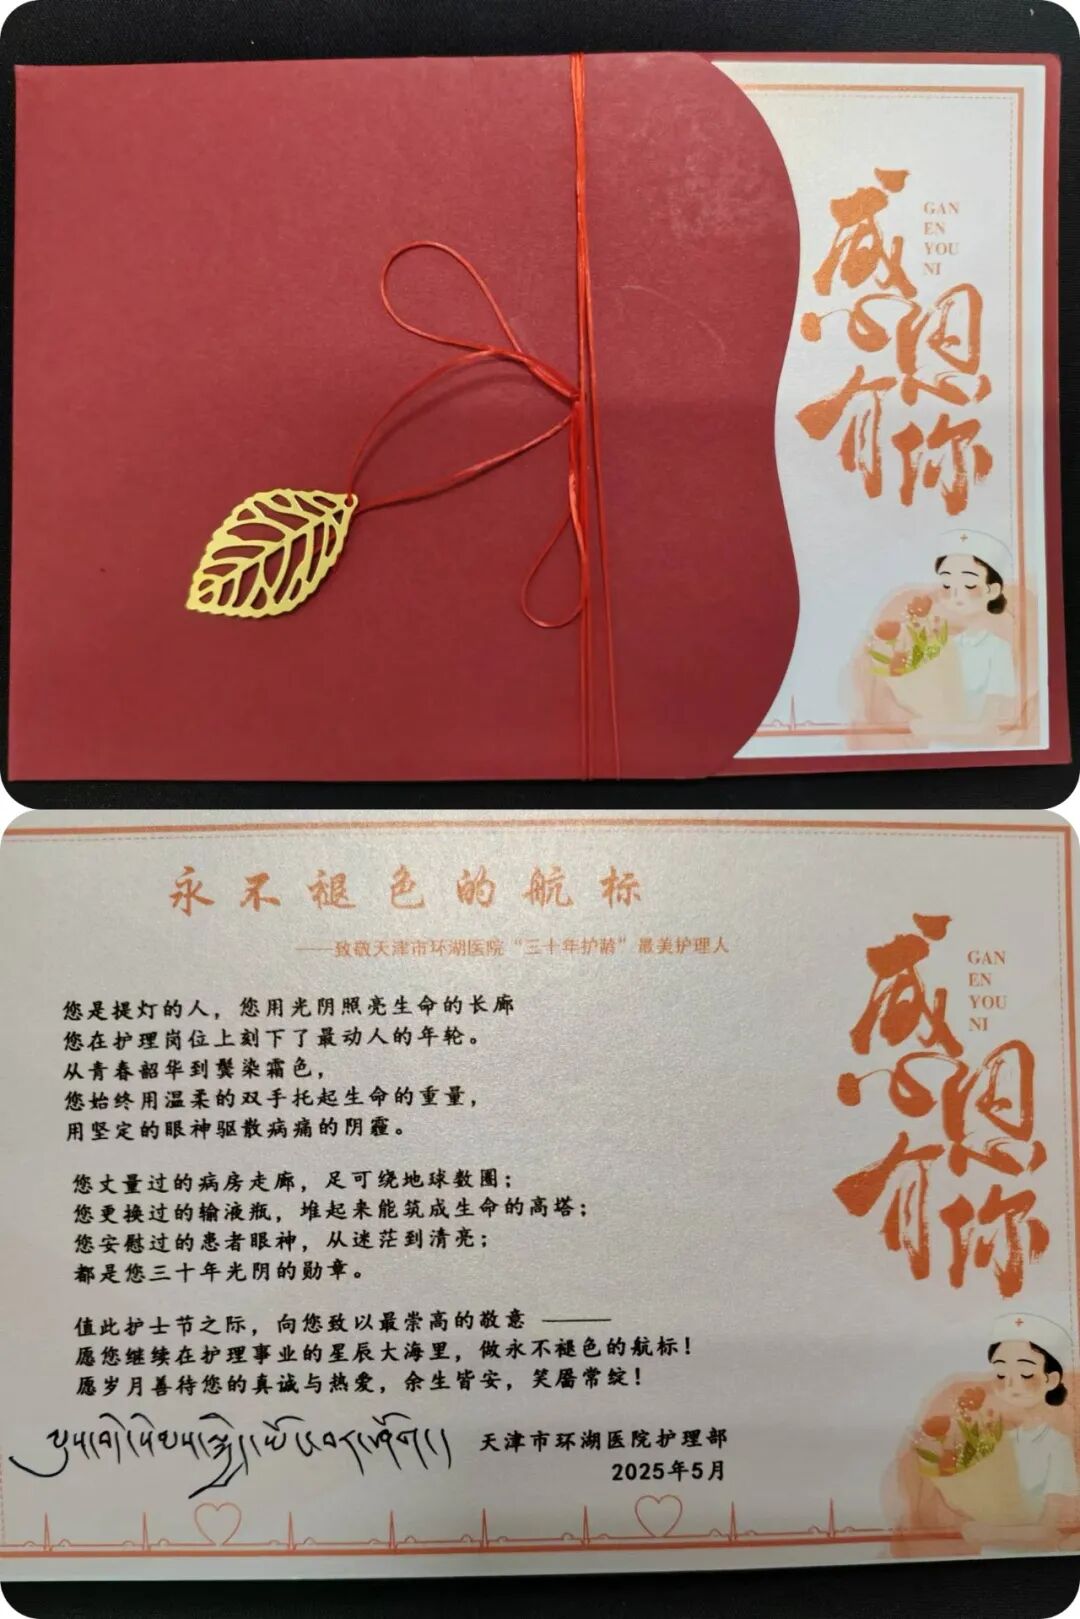 感恩有你
GAN
EN
YOU
NI
永不褪色的航标
——致敬天津市环湖医院“三十年护龄”最美护理人
您是提灯的人，您用光阴照亮生命的长廊
您在护理岗位上刻下了最动人的年轮。
从青春韶华到鬓染霜色，
您始终用温柔的双手托起生命的重量，
用坚定的眼神驱散病痛的阴霾。
您丈量过的病房走廊，足可绕地球数圈；
您更换过的输液瓶，堆起来能筑成生命的高塔；
您安慰过的患者眼神，从迷茫到清亮；
都是您三十年光阴的勋章。
值此护士节之际，向您致以最崇高的敬意 ———
愿您继续在护理事业的星辰大海里，做永不褪色的航标！
愿岁月善待您的真诚与热爱，余生皆安，笑靥常绽！
天津市环湖医院护理部
2025年5月
感恩有你
GAN
EN
YOU
NI